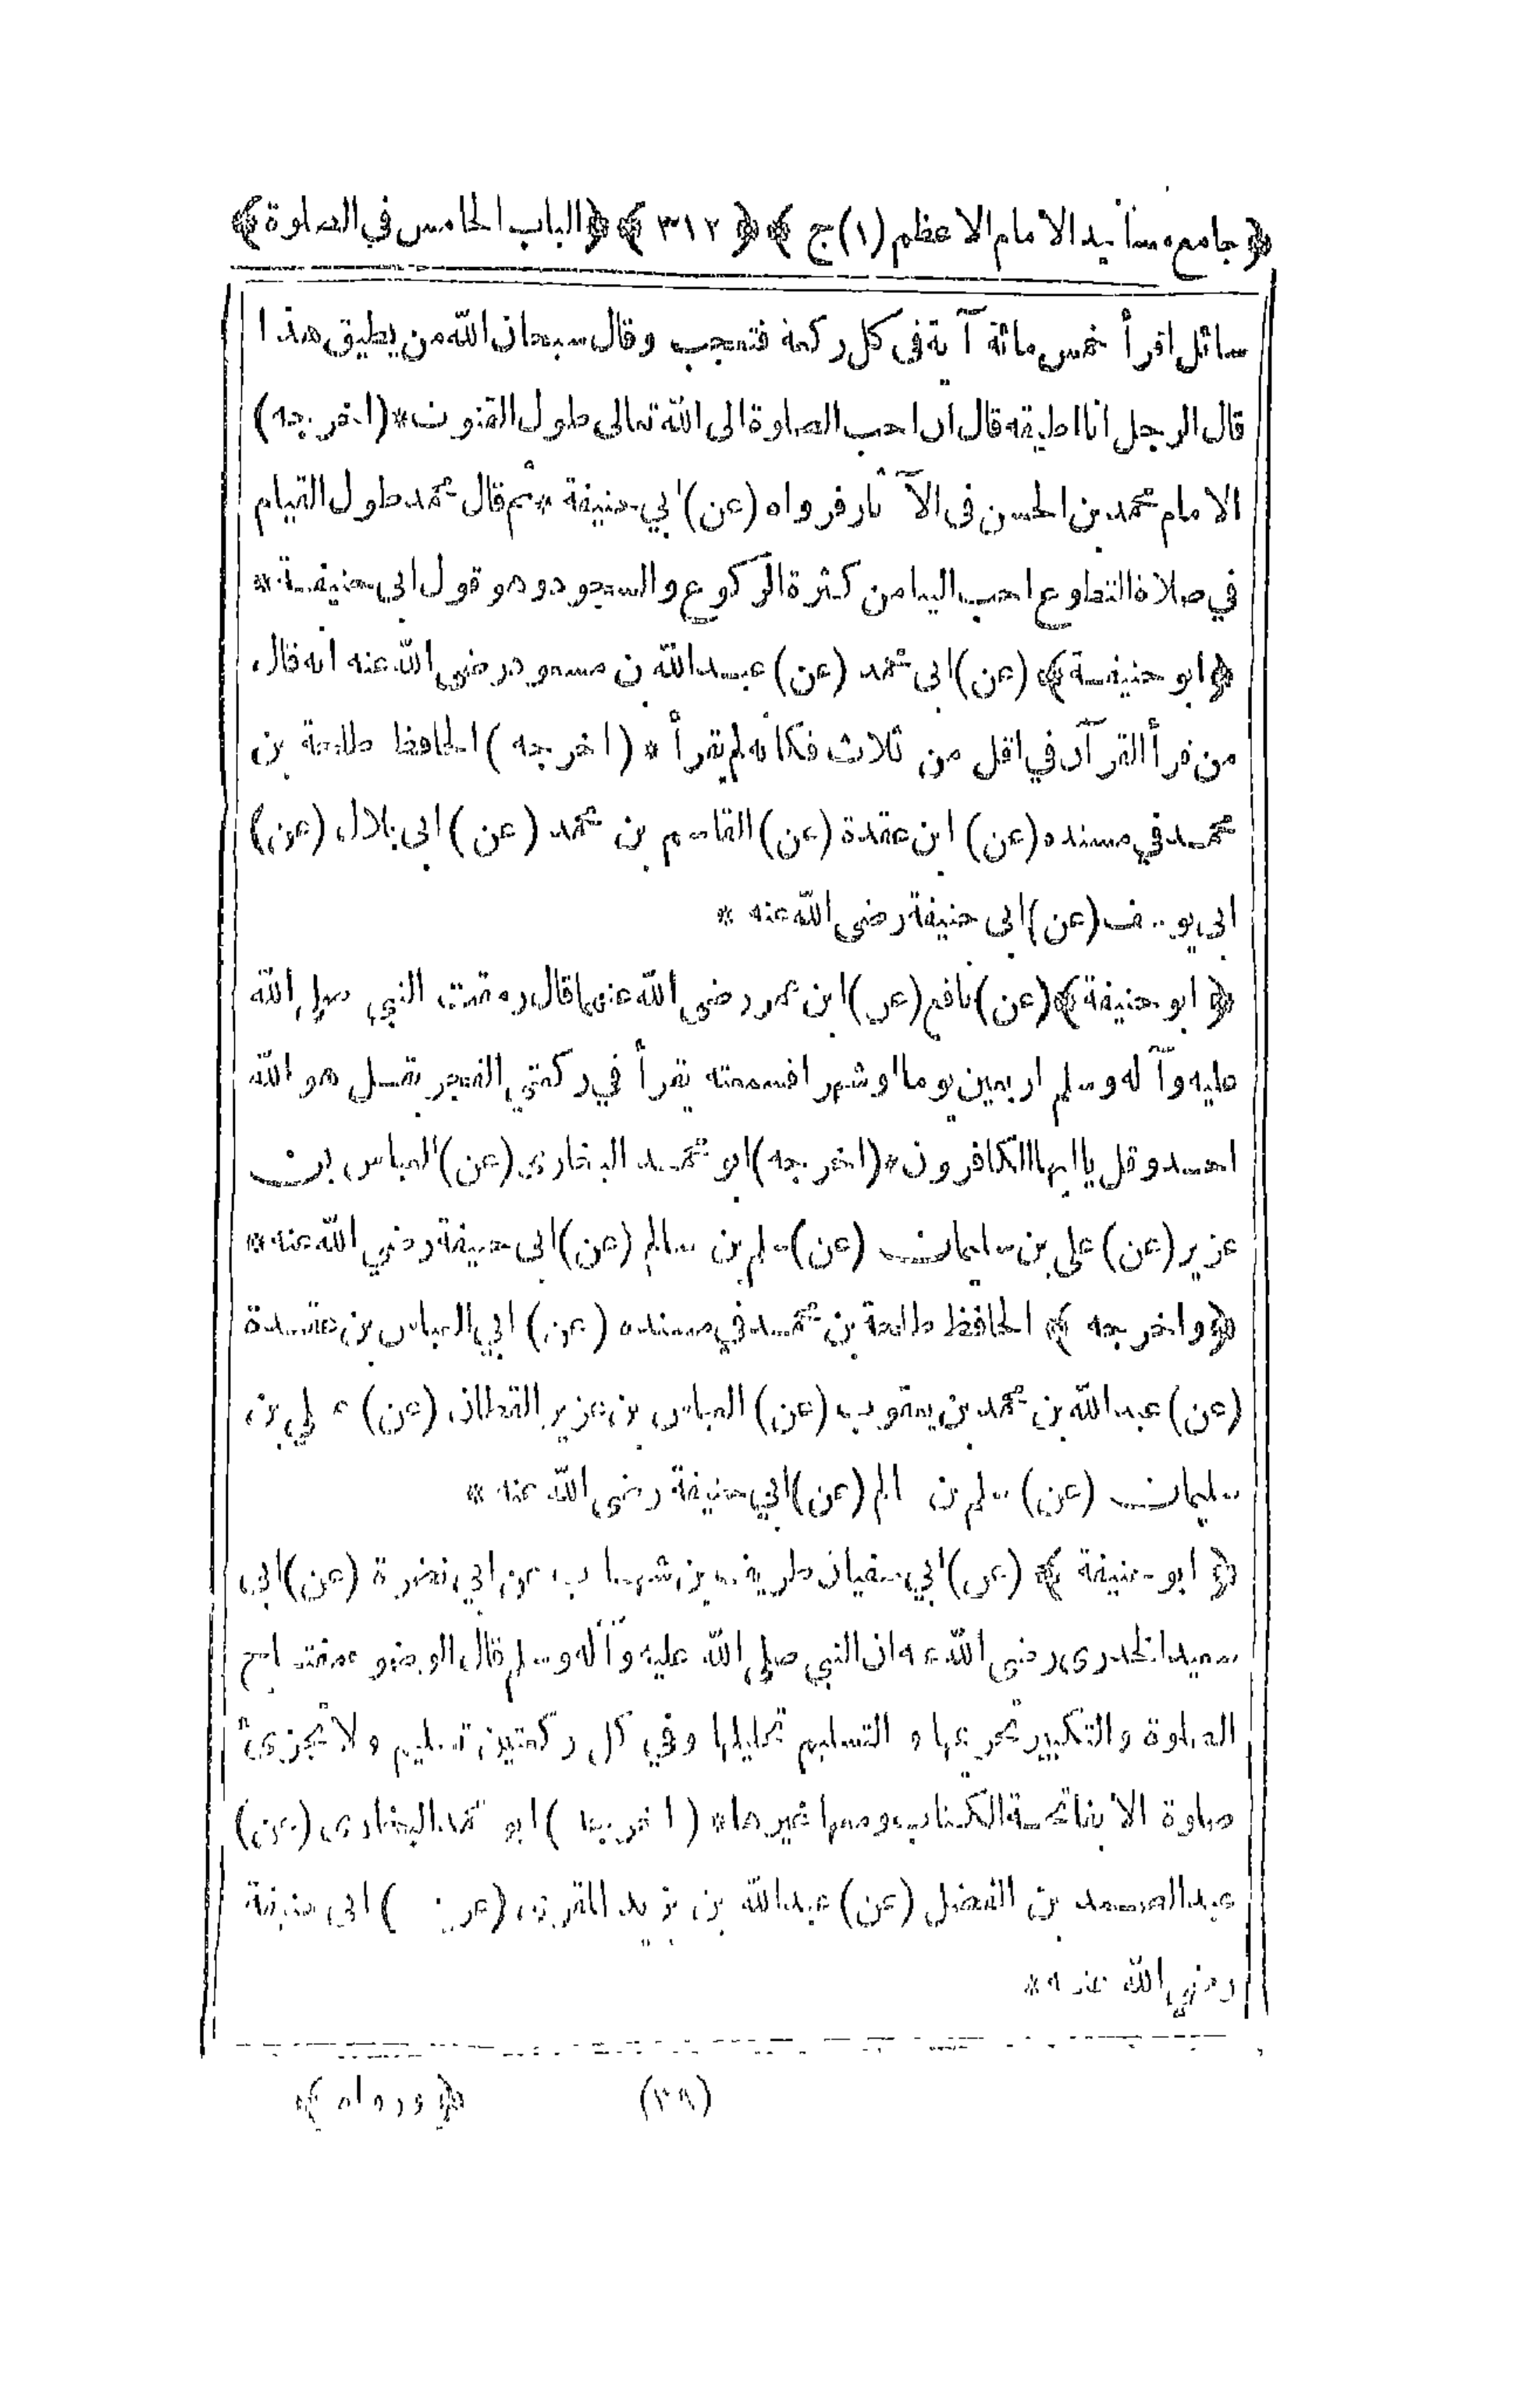 ﴿جامع مسانيد الامام الاعظم (١) ج﴾ ﴿٣١٢﴾ ﴿الباب الخامس في الصلوة﴾
سائل اقرأ خمس مائة آية فى كل ركعة فتعجب وقال سبحان الله من يطيق هذا
قال الرجل انا اطيقه قال ان احب الصلوة الى الله تعالى طول القنوت*(اخرجه)
الامام محمد بن الحسن فى الآثار فرواه (عن) ابي حنيفة * ثم قال محمد طول القيام
في صلاة التطوع احب الينا من كثرة الركوع والسجود وهو قول ابى حنيفة *
﴿ابو حنيفة﴾ (عن) ابى محمد (عن) عبد الله بن مسعود رضى الله عنه انه قال
من قرأ القرآن في اقل من ثلاث فكانه لم يقرأ * (اخرجه) الحافظ طلحة بن
محمد في مسنده (عن) ابن عقدة (عن) القاسم بن محمد (عن) ابى بلال (عن)
ابى يوسف (عن) ابى حنيفة رضى الله عنه *
﴿ابو حنيفة﴾ (عن) نافع (عن) ابن عمر رضى الله عنهما قال رمقت النبي صلى الله
عليه وآله وسلم اربعين يوما او شهرا فسمعته يقرأ في ركعتي الفجر بقل هو الله
احد وقل يا ايها الكافرون*(اخرجه) ابو محمد البخارى (عن) العباس بن
عزير (عن) على بن سليمان (عن) سلم بن سالم (عن) ابى حنيفة رضي الله عنه *
﴿واخرجه﴾ الحافظ طلحة بن محمد في مسنده (عن) ابي العباس بن عقدة
(عن) عبد الله بن محمد بن يعقوب (عن) العباس بن عزير القطان (عن) علي بن
سليمان (عن) سلم بن سالم (عن) ابي حنيفة رضى الله عنه *
﴿ابو حنيفة﴾ (عن) ابي سفيان طريف بن شهاب عن ابي نضرة (عن) ابى
سعيد الخدرى رضى الله عنه ان النبي صلى الله عليه وآله وسلم قال الوضوء مفتاح
الصلوة والتكبير تحريمها والتسليم تحليلها وفي كل ركعتين تسليم ولا تجزئ
صلوة الا بفاتحة الكتاب ومعها غيرها* (اخرجه) ابو محمد البخارى (عن)
عبد الصمد بن الفضل (عن) عبد الله بن يزيد المقرى (عن) ابى حنيفة
رضي الله عنه *
(٣٩) ﴿ورواه﴾